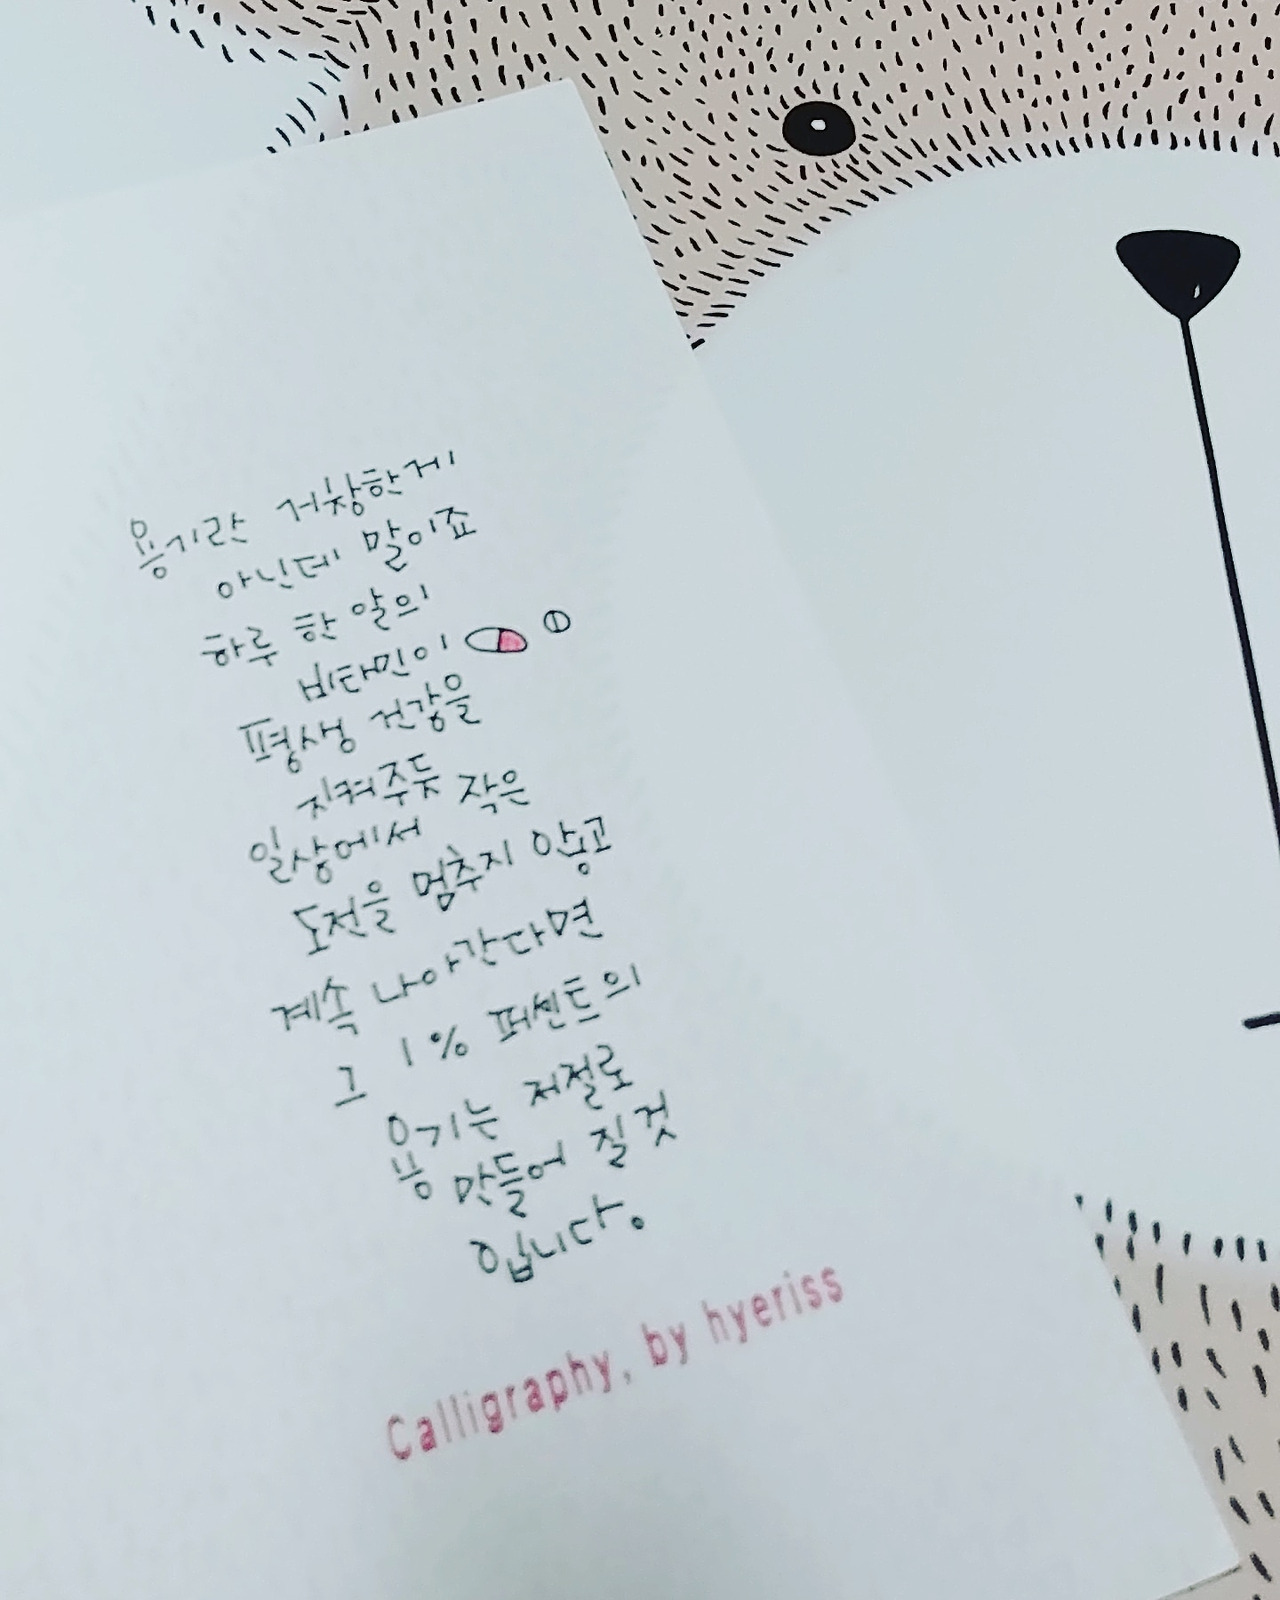 용기란 거창한게
아닌데 말이죠
하루 한 알의
비타민이
평생 건강을
지켜주듯
일상에서 작은
도전을 멈추지 않고
계속 나아간다면
그 1% 퍼센트의
용기는 저절로
만들어 질 것
입니다.
Calligraphy, by hyeriss